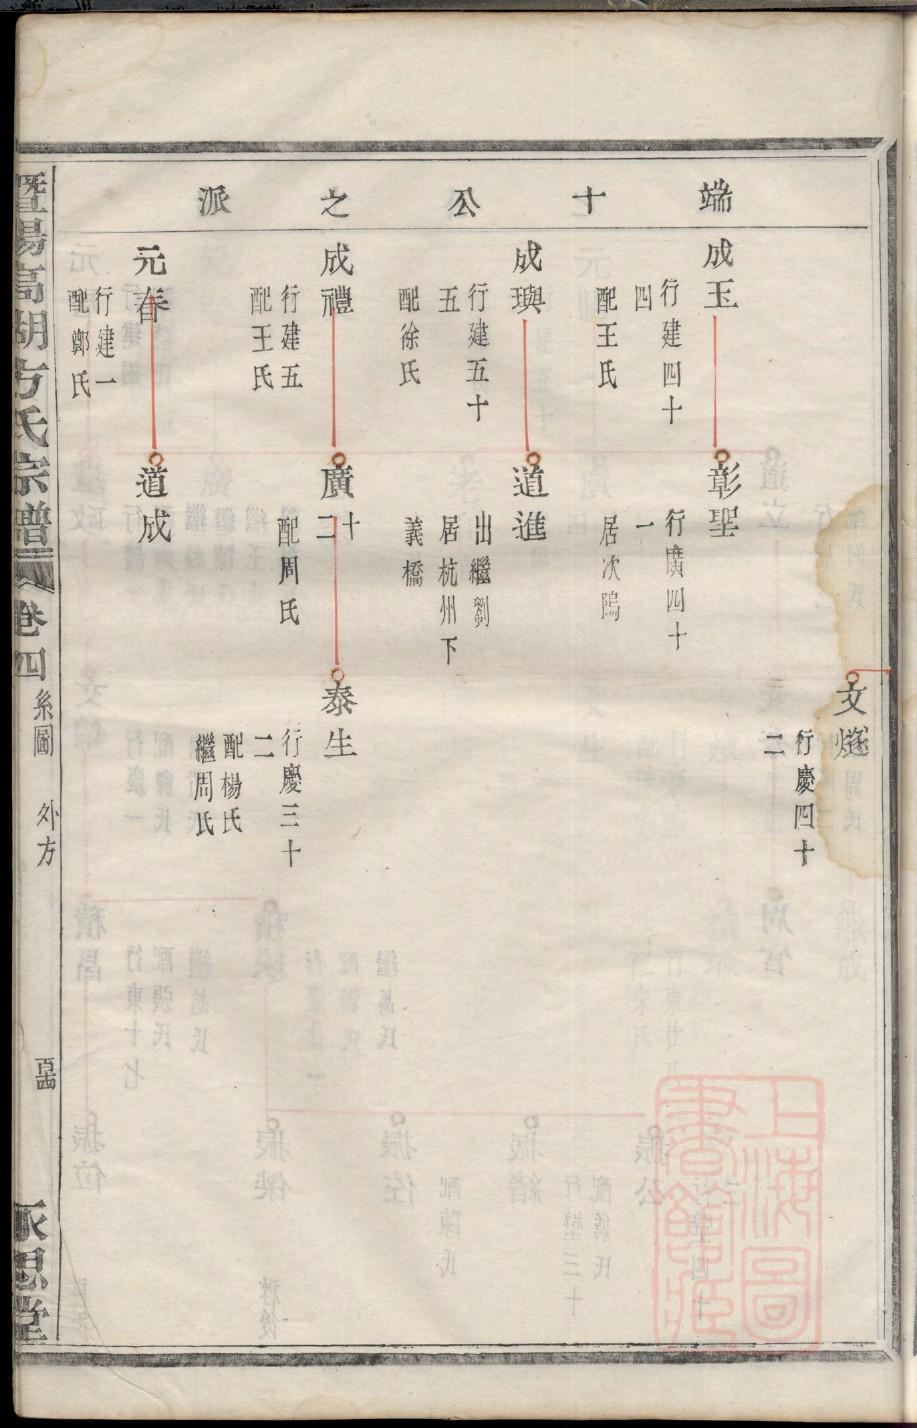 端十公之派
成玉
行建四十
四
配王氏
彰聖
行廣四十
一
居次隖
文燧
行慶四十
二
成璵
行建五十
五
配徐氏
道進
出繼劉
居杭州下
義橋
成禮
行建五
配王氏
廣二十
配周氏
泰生
行慶三十
二
配楊氏
繼周氏
元春
行建一
配鄭氏
道成
暨陽高湖方氏宗譜 卷四 系圖 外方 永思堂
上海圖書館藏